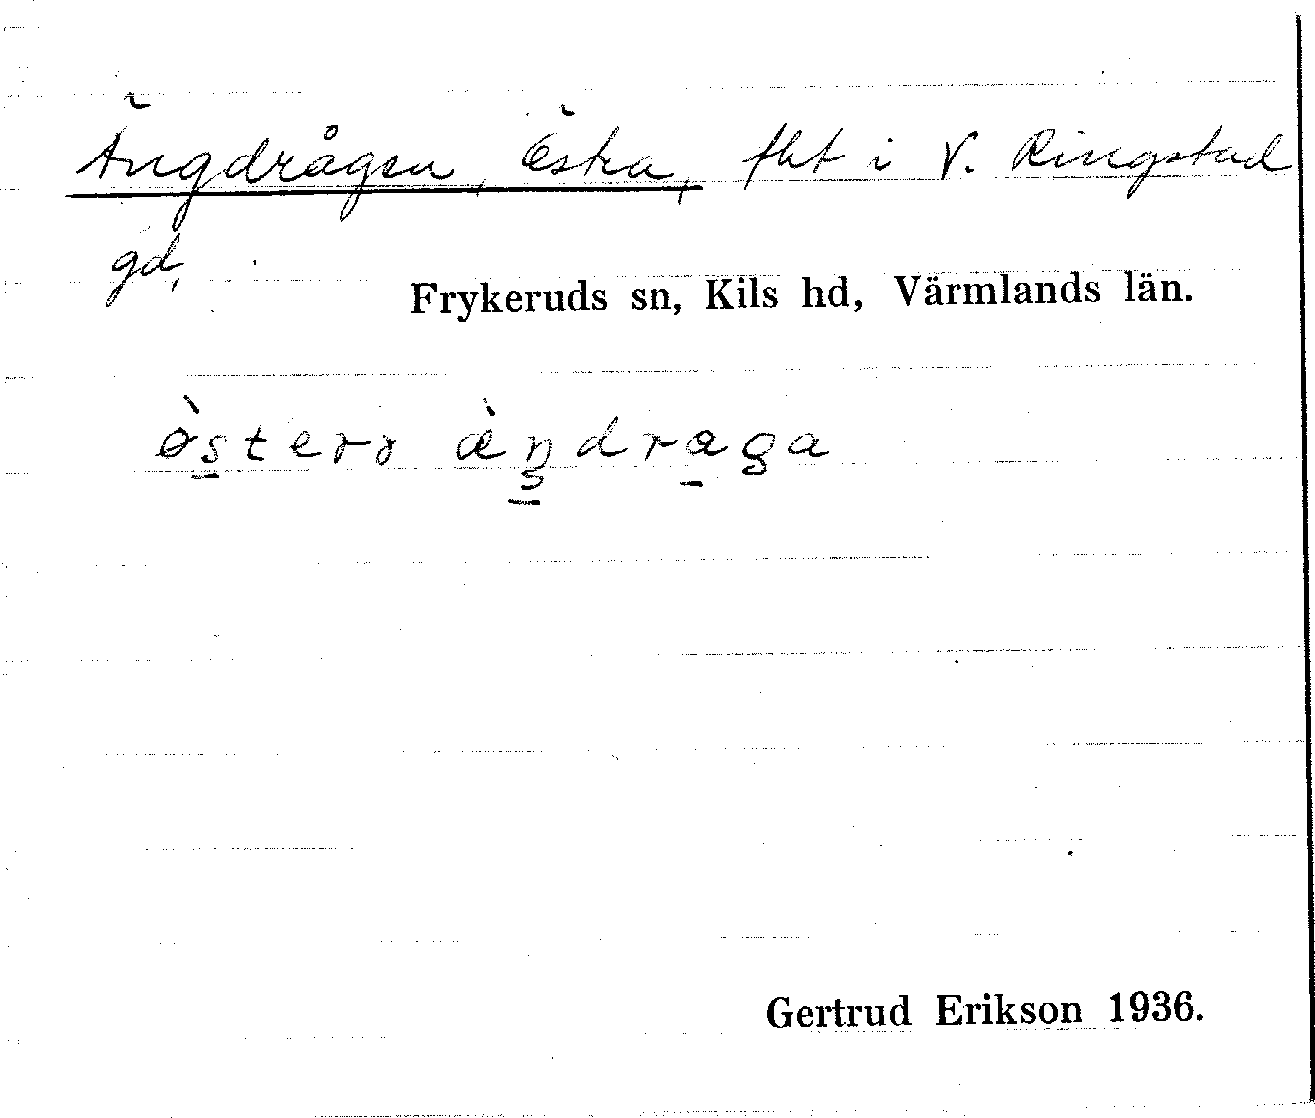 Ängdrågen, Östra, fht i V. Ringstad
gd,
Frykeruds sn, Kils hd, Värmlands län.
Gertrud Erikson 1936.